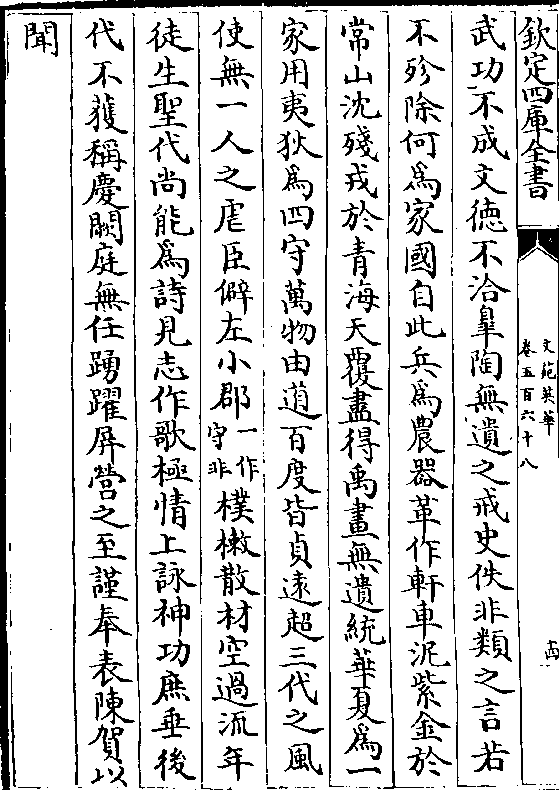 欽定四庫全書
文苑英華
卷五百六十八
武功不成文徳不洽臯陶無遺之戒史佚非類之言若
不殄除何爲家國自此兵爲農器革作軒車泥紫金於
常山沈殘戎於青海天覆盡得禹畫無遺統華夏爲一
家用夷狄爲四守萬物由道百度皆貞逺超三代之風
使無一人之虐臣僻左小郡一作守非樸樕散材空過流年
徒生聖代尚能爲詩見志作歌極情上詠神功庶垂後
代不獲稱慶闕庭無任踴躍屏營之至謹奉表陳賀以
聞